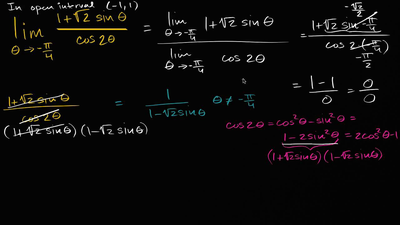 In open interval (-1, 1)
lim θ→-π/4 (1+√2 sin θ)/(cos 2θ) = (lim θ→-π/4 1+√2 sin θ)/(lim θ→-π/4 cos 2θ) = (1+√2 sin -π/4)/(cos 2(-π/4))
-√2/2
-π/2
= (1-1)/0 = 0/0
(1+√2 sin θ)/(cos 2θ) = 1/(1-√2 sin θ) θ ≠ -π/4
(1+√2 sin θ)(1-√2 sin θ)
cos 2θ = cos²θ - sin²θ =
1-2sin²θ = 2cos²θ-1
(1+√2 sin θ)(1-√2 sin θ)